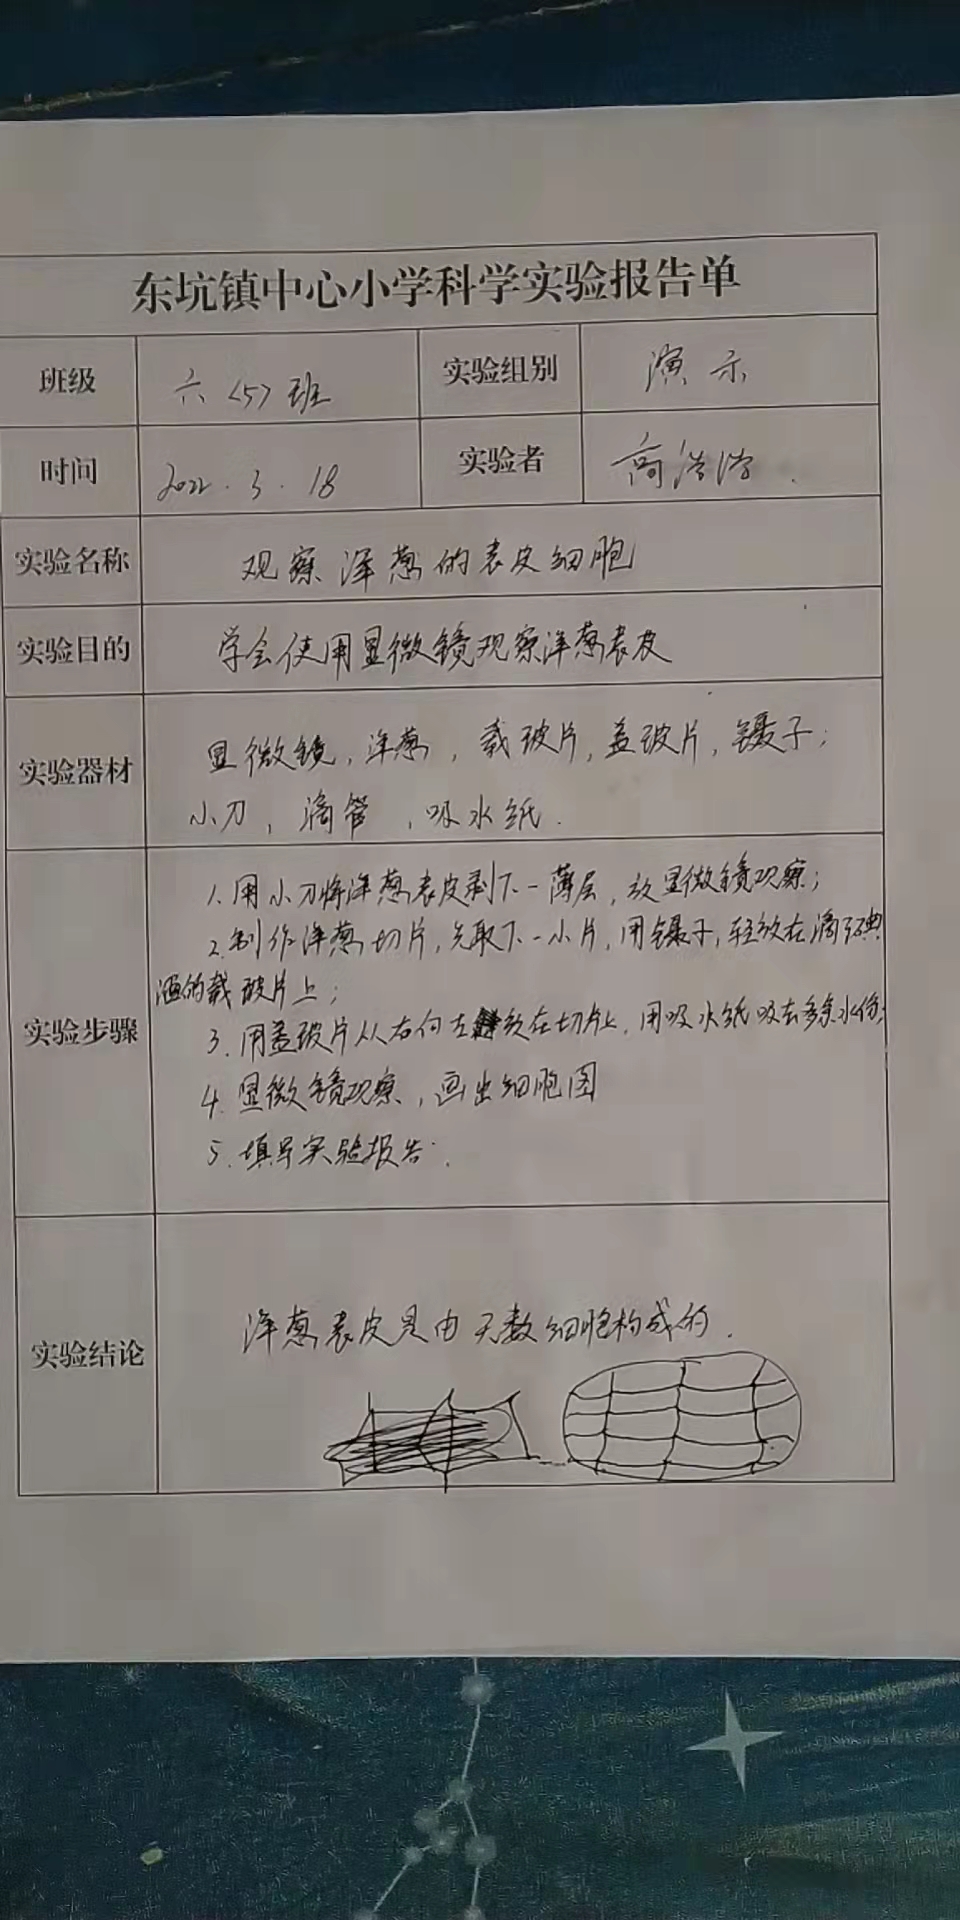 东坑镇中心小学科学实验报告单
班级 六<5>班 实验组别 演示
时间 2022.3.18 实验者 高浩浩.
实验名称 观察洋葱的表皮细胞
实验目的 学会使用显微镜观察洋葱表皮
实验器材
显微镜,洋葱,载玻片,盖玻片,镊子;
小刀,滴管,吸水纸.
实验步骤
1.用小刀将洋葱表皮剥下一薄层,放显微镜观察;
2.制作洋葱切片,先取下一小片,用镊子,轻放在滴了碘
酒的载玻片上;
3.用盖玻片从右向左放在切片上,用吸水纸吸去多余水份;
4.显微镜观察,画出细胞图
5.填写实验报告.
实验结论
洋葱表皮是由无数细胞构成的.